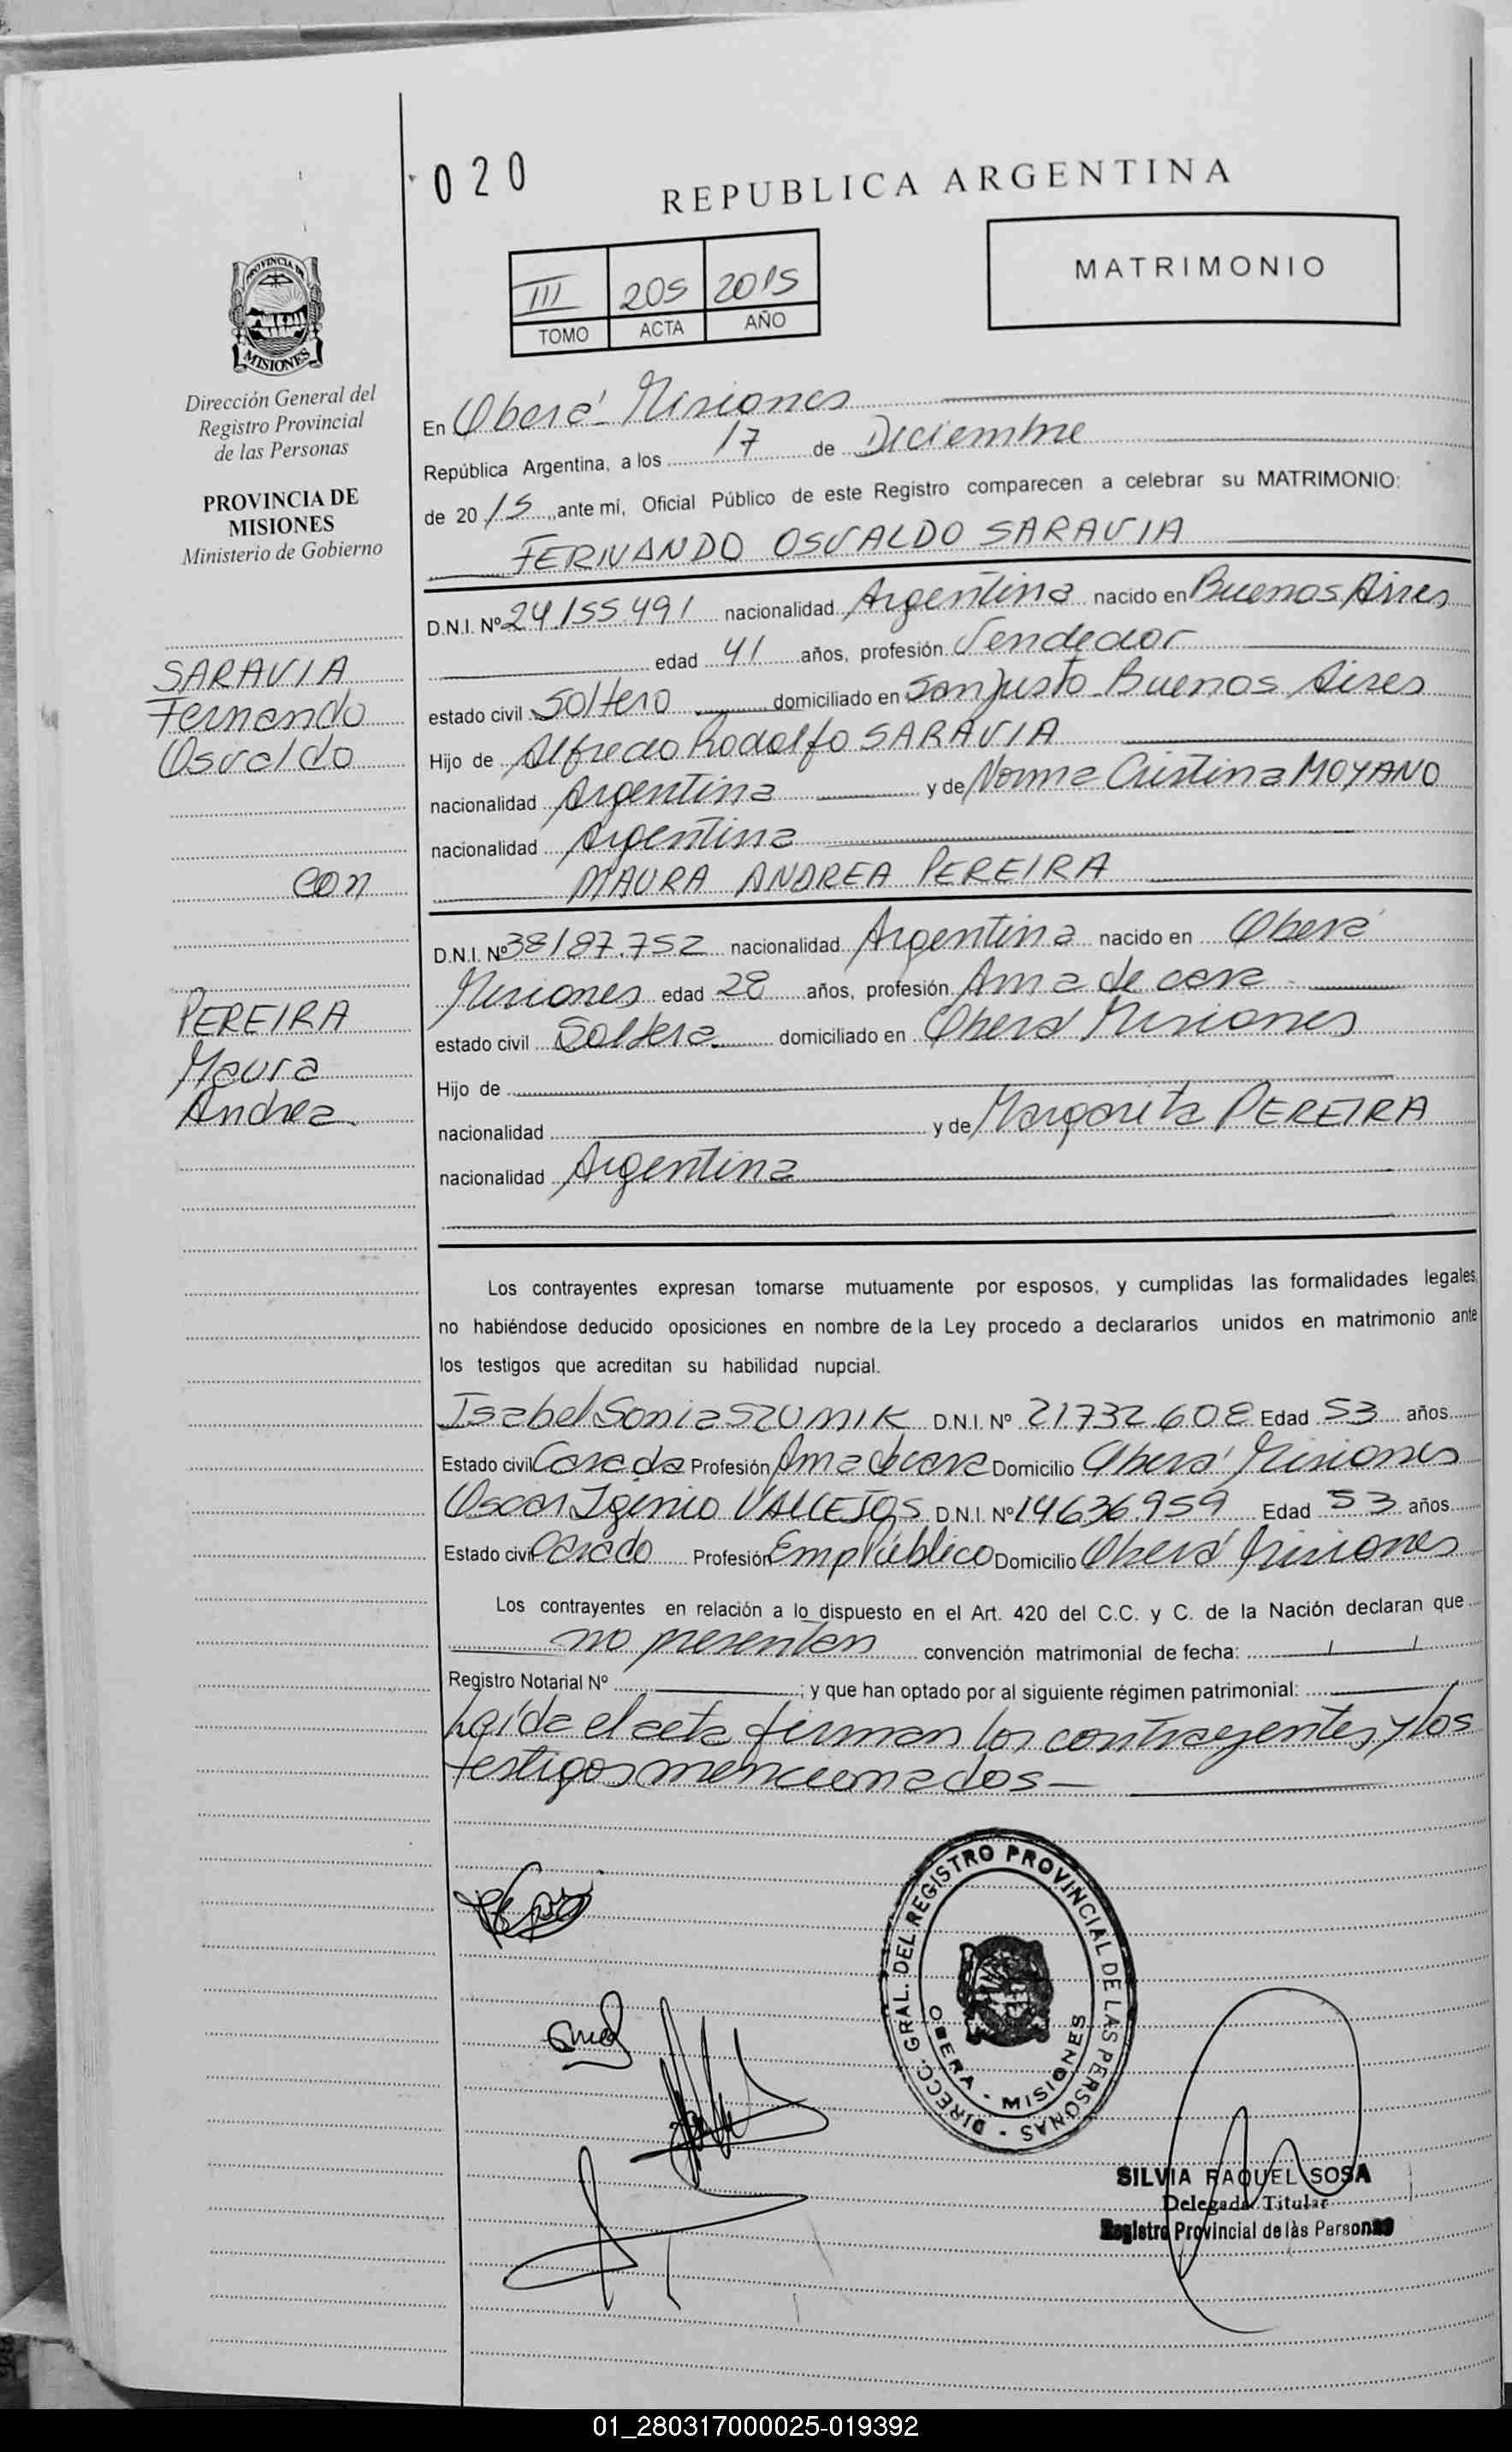 020
REPUBLICA ARGENTINA
III 205 2015
TOMO ACTA AÑO
MATRIMONIO
PROVINCIA DE
MISIONES
Dirección General del
Registro Provincial
de las Personas
PROVINCIA DE
MISIONES
Ministerio de Gobierno
SARAVIA
Fernando
Osvaldo
con
PEREIRA
Maura
Andrea
En Oberá Misiones
República Argentina, a los 17 de Diciembre
de 2015, ante mí, Oficial Público de este Registro comparecen a celebrar su MATRIMONIO:
FERNANDO OSVALDO SARAVIA
D.N.I. Nº 24.155.491 nacionalidad Argentina nacido en Buenos Aires
edad 41 años, profesión Vendedor
estado civil Soltero domiciliado en San Justo Buenos Aires
Hijo de Alfredo Rodolfo SARAVIA
nacionalidad Argentina y de Norma Cristina MOYANO
nacionalidad Argentina
MAURA ANDREA PEREIRA
D.N.I. Nº 38187.752 nacionalidad Argentina nacido en Oberá
Misiones edad 28 años, profesión Ama de casa
estado civil Soltera domiciliado en Oberá Misiones
Hijo de
nacionalidad y de Margarita PEREIRA
nacionalidad Argentina
Los contrayentes expresan tomarse mutuamente por esposos, y cumplidas las formalidades legales,
no habiéndose deducido oposiciones en nombre de la Ley procedo a declararlos unidos en matrimonio ante
los testigos que acreditan su habilidad nupcial.
Isabel Sonia SZUMIK D.N.I. Nº 21.732.608 Edad 53 años
Estado civil Casada Profesión Ama de casa Domicilio Oberá Misiones
Oscar Igenio VALLEJOS D.N.I. Nº 14.636.959 Edad 53 años
Estado civil Casado Profesión Emp Público Domicilio Oberá Misiones
Los contrayentes en relación a lo dispuesto en el Art. 420 del C.C. y C. de la Nación declaran que
no presentan convención matrimonial de fecha: / /
Registro Notarial Nº ; y que han optado por al siguiente régimen patrimonial:
Laída el acta firman los contrayentes y los
testigos mencionados
DIRECC. GRAL. DEL REGISTRO PROVINCIAL DE LAS PERSONAS -
OBERA - MISIONES
SILVIA RAQUEL SOSA
Delegada Titular
Registro Provincial de las Personas
01_280317000025-019392